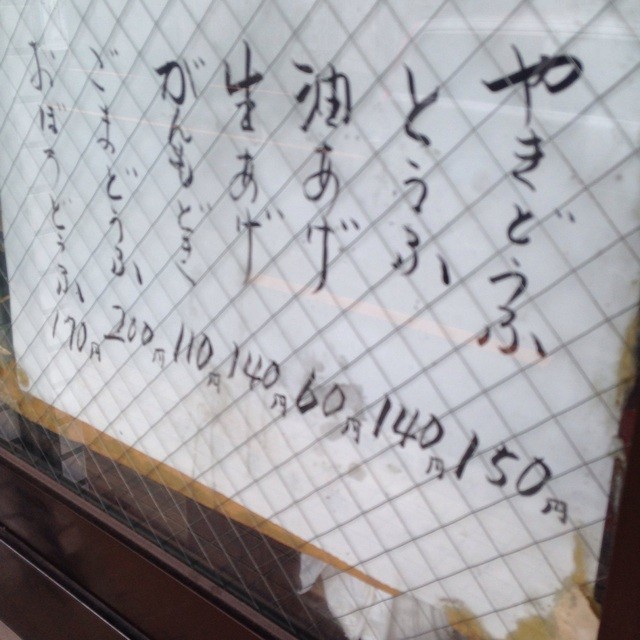 やきどうふ 150円
とうふ 140円
油あげ 60円
生あげ 140円
110円
ごまどうふ 200円
おぼろどうふ 170円